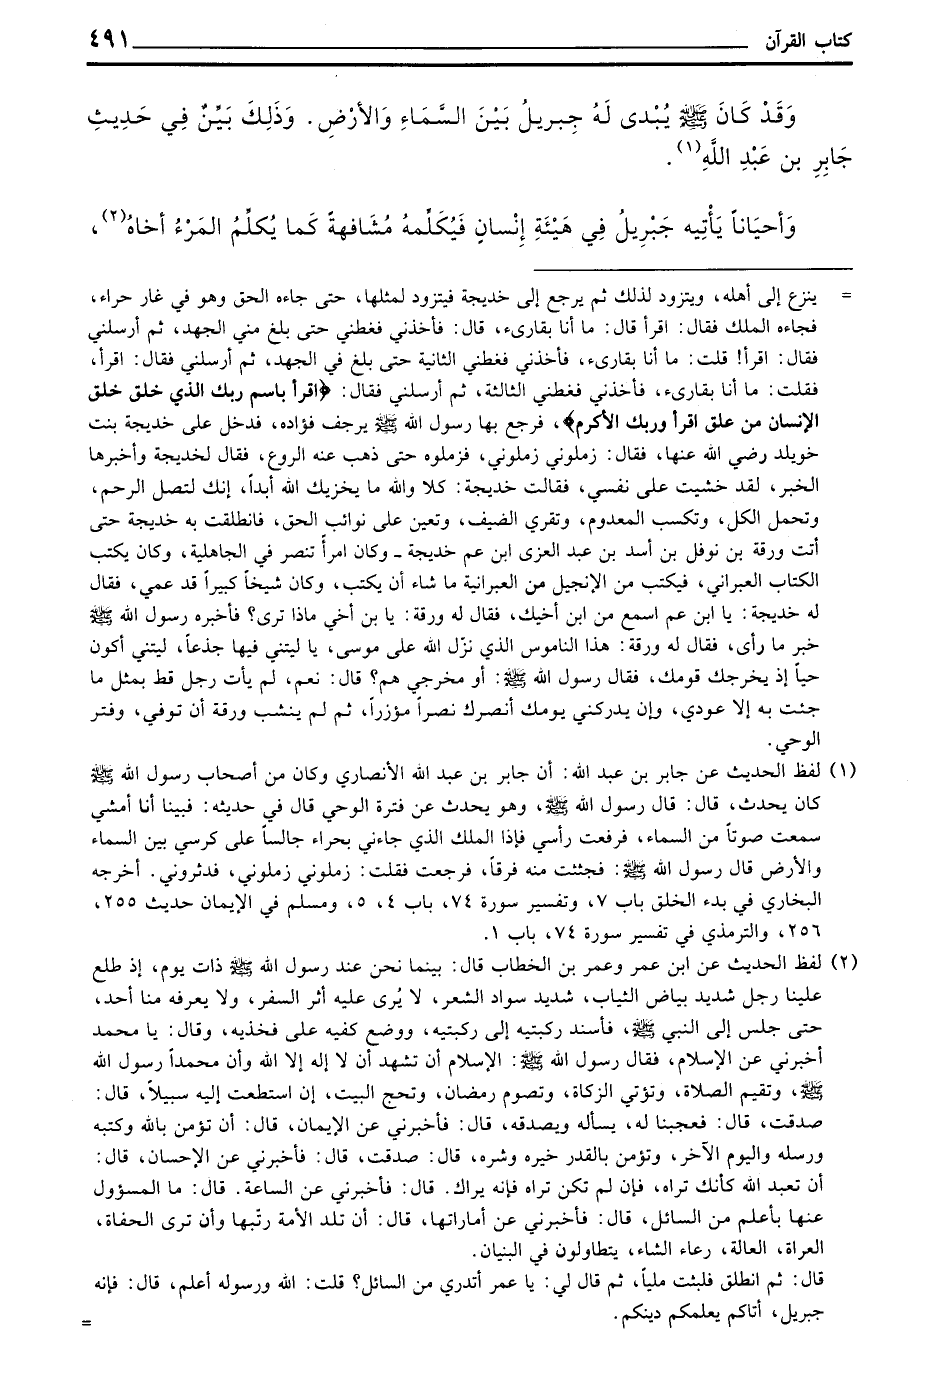 كتاب القرآن ٤٩١
وَقَدْ كَانَ ﷺ يُبْدى لَهُ جِبريلُ بَيْنَ السَّمَاءِ وَالأرْضِ. وَذَلِكَ بَيِّنٌ فِي حَدِيثِ
جَابِرِ بن عَبْدِ اللَّهِ(١).
وَأحيَاناً يَأْتِيه جَبْرِيلُ فِي هَيْئَةِ إِنْسانٍ فَيُكَلِّمهُ مُشَافهةً كَما يُكلِّمُ المَرْءُ أخاهُ(٢)،
= ينزع إلى أهله، ويتزود لذلك ثم يرجع إلى خديجة فيتزود لمثلها، حتى جاءه الحق وهو في غار حراء،
فجاءه الملك فقال: اقرأ قال: ما أنا بقارىء، قال: فأخذني فغطني حتى بلغ مني الجهد، ثم أرسلني
فقال: اقرأ! قلت: ما أنا بقارىء، فأخذني فغطني الثانية حتى بلغ في الجهد، ثم أرسلني فقال: اقرأ،
فقلت: ما أنا بقارىء، فأخذني فغطني الثالثة، ثم أرسلني فقال: ﴿اقرأ باسم ربك الذي خلق خلق
الإنسان من علق اقرأ وربك الأكرم﴾، فرجع بها رسول الله ﷺ يرجف فؤاده، فدخل على خديجة بنت
خويلد رضي الله عنها، فقال: زملوني زملوني، فزملوه حتى ذهب عنه الروع، فقال لخديجة وأخبرها
الخبر، لقد خشيت على نفسي، فقالت خديجة: كلا والله ما يخزيك الله أبداً، إنك لتصل الرحم،
وتحمل الكل، وتكسب المعدوم، وتقري الضيف، وتعين على نوائب الحق، فانطلقت به خديجة حتى
أتت ورقة بن نوفل بن أسد بن عبد العزى ابن عم خديجة - وكان امرأً تنصر في الجاهلية، وكان يكتب
الكتاب العبراني، فيكتب من الإنجيل من العبرانية ما شاء أن يكتب، وكان شيخاً كبيراً قد عمي، فقال
له خديجة: يا ابن عم اسمع من ابن أخيك، فقال له ورقة: يا بن أخي ماذا ترى؟ فأخبره رسول الله ﷺ
خبر ما رأى، فقال له ورقة: هذا الناموس الذي نزّل الله على موسى، يا ليتني فيها جذعاً، ليتني أكون
حياً إذ يخرجك قومك، فقال رسول الله ﷺ: أو مخرجي هم؟ قال: نعم، لم يأت رجل قط بمثل ما
جئت به إلا عودي، وإن يدركني يومك أنصرك نصراً مؤزراً، ثم لم ينشب ورقة أن توفي، وفتر
الوحي.
(١) لفظ الحديث عن جابر بن عبد الله: أن جابر بن عبد الله الأنصاري وكان من أصحاب رسول الله ﷺ
كان يحدث، قال: قال رسول الله ﷺ، وهو يحدث عن فترة الوحي قال في حديثه: فبينا أنا أمشي
سمعت صوتاً من السماء، فرفعت رأسي فإذا الملك الذي جاءني بحراء جالساً على كرسي بين السماء
والأرض قال رسول الله ﷺ: فجئثت منه فرقاً، فرجعت فقلت: زملوني زملوني، فدثروني. أخرجه
البخاري في بدء الخلق باب ٧، وتفسير سورة ٧٤، باب ٤، ٥، ومسلم في الإيمان حديث ٢٥٥،
٢٥٦، والترمذي في تفسير سورة ٧٤، باب ١.
(٢) لفظ الحديث عن ابن عمر وعمر بن الخطاب قال: بينما نحن عند رسول الله ﷺ ذات يوم، إذ طلع
علينا رجل شديد بياض الثياب، شديد سواد الشعر، لا يُرى عليه أثر السفر، ولا يعرفه منا أحد،
حتى جلس إلى النبي ﷺ، فأسند ركبتيه إلى ركبتيه، ووضع كفيه على فخذيه، وقال: يا محمد
أخبرني عن الإسلام، فقال رسول الله ﷺ: الإسلام أن تشهد أن لا إله إلا الله وأن محمداً رسول الله
ﷺ، وتقيم الصلاة، وتؤتي الزكاة، وتصوم رمضان، وتحج البيت، إن استطعت إليه سبيلاً، قال:
صدقت، قال: فعجبنا له، يسأله ويصدقه، قال: فأخبرني عن الإيمان، قال: أن تؤمن بالله وكتبه
ورسله واليوم الآخر، وتؤمن بالقدر خيره وشره، قال: صدقت، قال: فأخبرني عن الإحسان، قال:
أن تعبد الله كأنك تراه، فإن لم تكن تراه فإنه يراك. قال: فأخبرني عن الساعة. قال: ما المسؤول
عنها بأعلم من السائل، قال: فأخبرني عن أماراتها، قال: أن تلد الأمة ربّها وأن ترى الحفاة،
العراة، العالة، رعاء الشاء، يتطاولون في البنيان.
قال: ثم انطلق فلبثت ملياً، ثم قال لي: يا عمر أتدري من السائل؟ قلت: الله ورسوله أعلم، قال: فإنه
جبريل، أتاكم يعلمكم دينكم. =